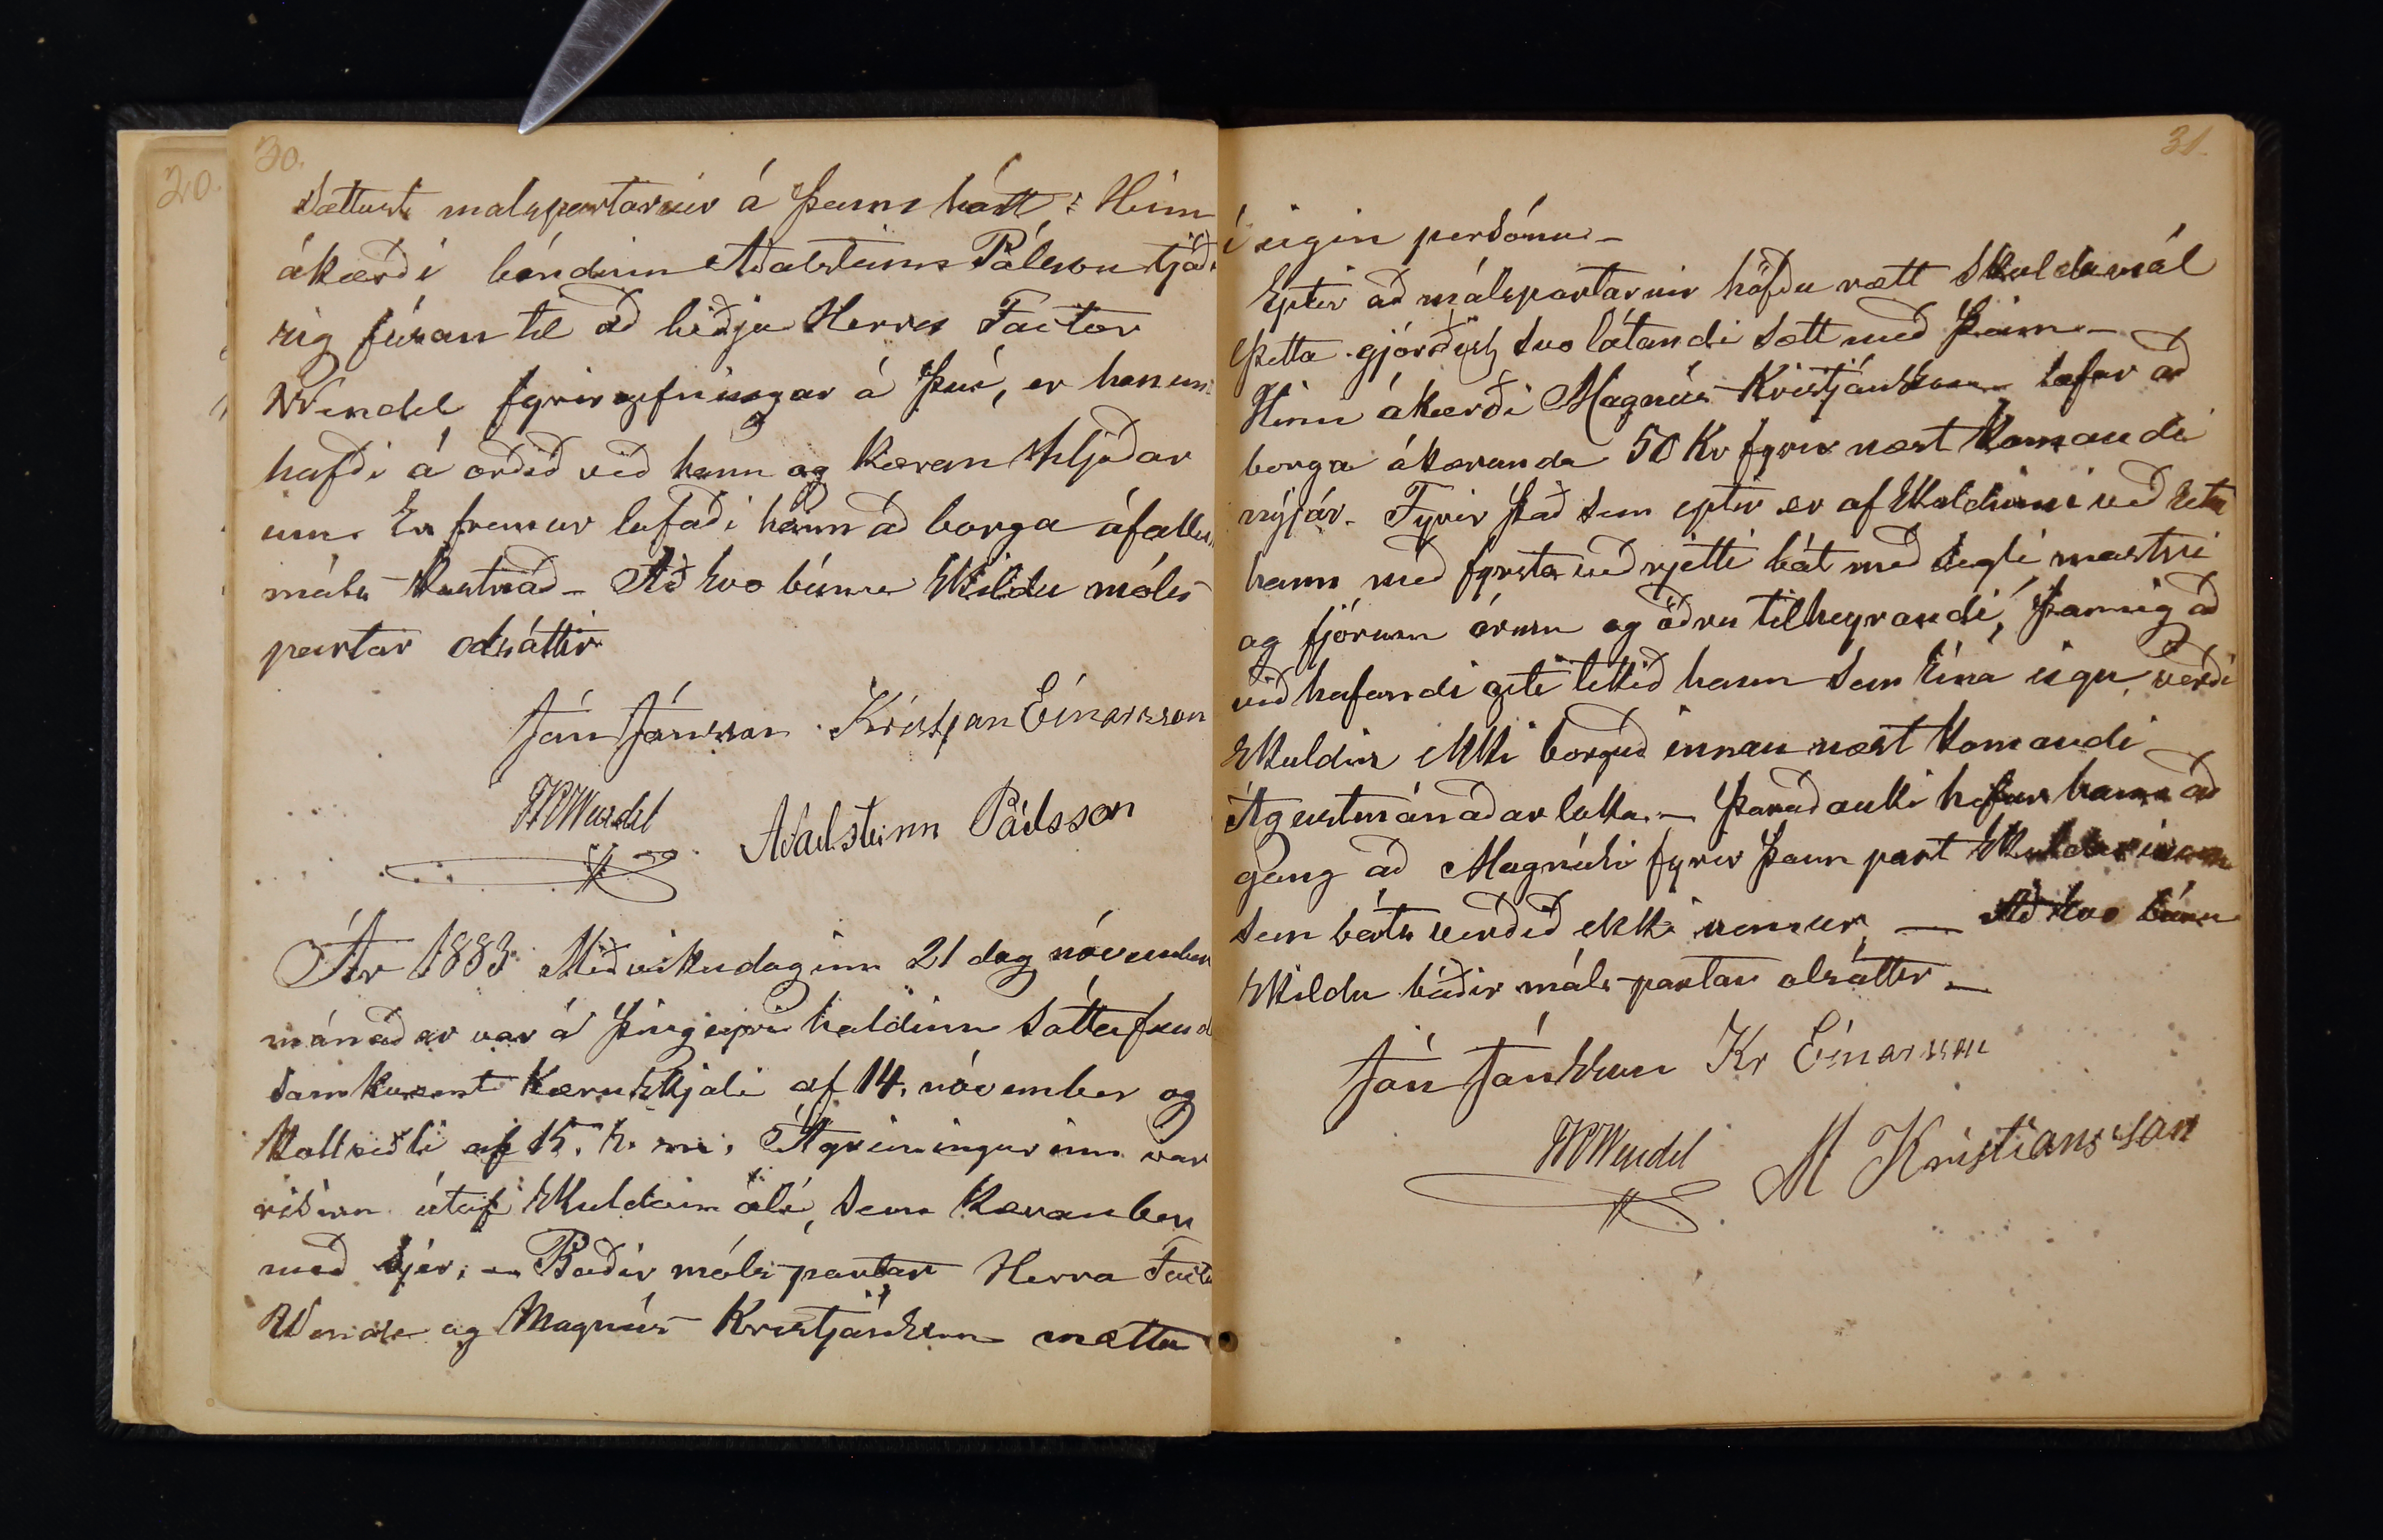 20.
30.
Sættust malspartarnir á þann hátt: Hinn
ákærði bóndinn Aðalsteinn Pálsson tjáði
sig fúsan til að biðja Herra Factor
Wendel fyrirgefningar á því, er honum
hafði á orðið við hann og kæran hljóðar
um. En fremur lofaði hann að borga áfallin
máls-kostnað - Að svo búnu skildu máls-
partar alsáttir
Jón Jónsson Kristjan Einarsson
FRWendel Aðalsteinn Pálsson
Ár 1883 Miðvikudaginn 21 dag nóvember
mánaðar var á Þingeyri haldinn sáttafund
samkvæmt kæruskjali af 14. nóvember og
kallseðli af 15. h. m. Ágreiningurinn var
risinn útaf skuldamáli, sem kæran ber
með sjer. - Baðir máls-partar Herra Factor
Wendel og Magnús Kristjánsson mættu
31.
í eigin persónu -
Eptir að málspartarnir höfðu rætt skuldamál
þetta gjörðist svo látandi sætt með þeim -
Hinn ákærði Magnús Kristjánsson lofar að
borga ákæranda 50 Kr fyrir næst komandi
nýjár. Fyrir það sem eptir er af skuldinni veð setur
hann með fyrsta veðrjetti bát með segli, mastri
og fjórum árum og öðru tilheyrandi, þannig að
veðhafandi geti tekið hann sem sína eign, verði
skuldin ekki borguð innan næst komandi
Águstmánaðarloka. - Þaraðauki hefur hann að
gang að Magnúsi fyrir þann part skuldarinnar
sem báts verðið ekki nemur. - Að svo búnu
skildu báðir máls-partar alsáttir -
Jón Jónsson Kr Einarsson
FRWendel M Kristiansson